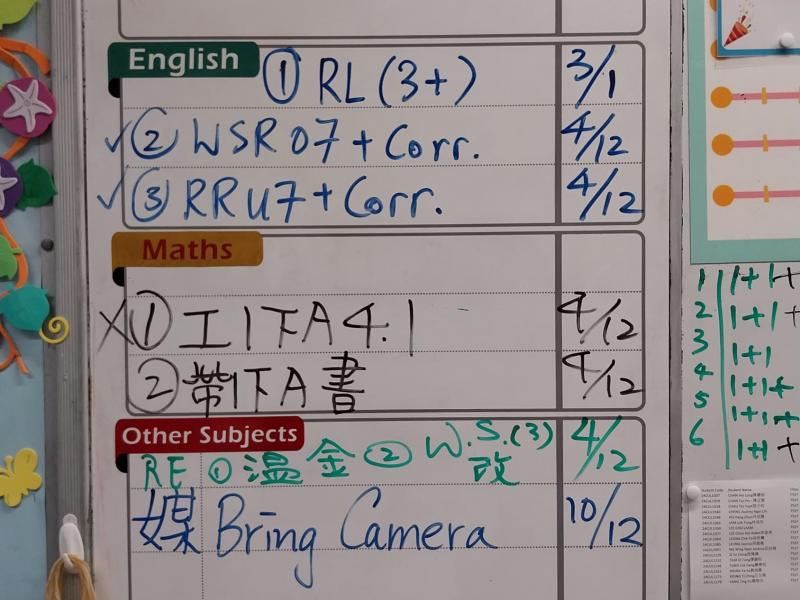 English
① RL (3+) 3/1
✓ ② WSR 07 + Corr. 4/12
✓ ③ RR U7 + Corr. 4/12
Maths
X ① 工1下A 4.1 4/12
② 帶1下A書 4/12
Other Subjects
RE ① 温金 ② W.S.(3)改 4/12
媒 Bring Camera 10/12
1 1+1+
2 1+1+
3 1+1
4 1+1+
5 1+1+
6 1+1+
Student Code Student Name